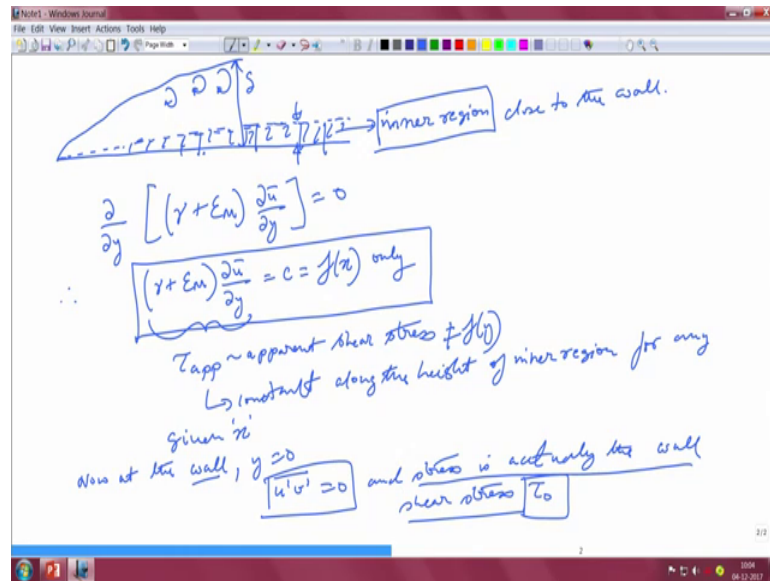 Note1 - Windows Journal
File Edit View Insert Actions Tools Help
Page Width
δ
inner region close to the wall.
∂/∂y [(γ + εM) ∂ū/∂y] = 0
∴ (γ + εM) ∂ū/∂y = c = f(x) only
τapp ~ apparent shear stress ≠ f(y)
↳ constant along the height of inner region for any
given 'x'
Now at the wall, y = 0
u'v' = 0 and stress is actually the wall
shear stress τ0
2/2
2
10:04
04-12-2017